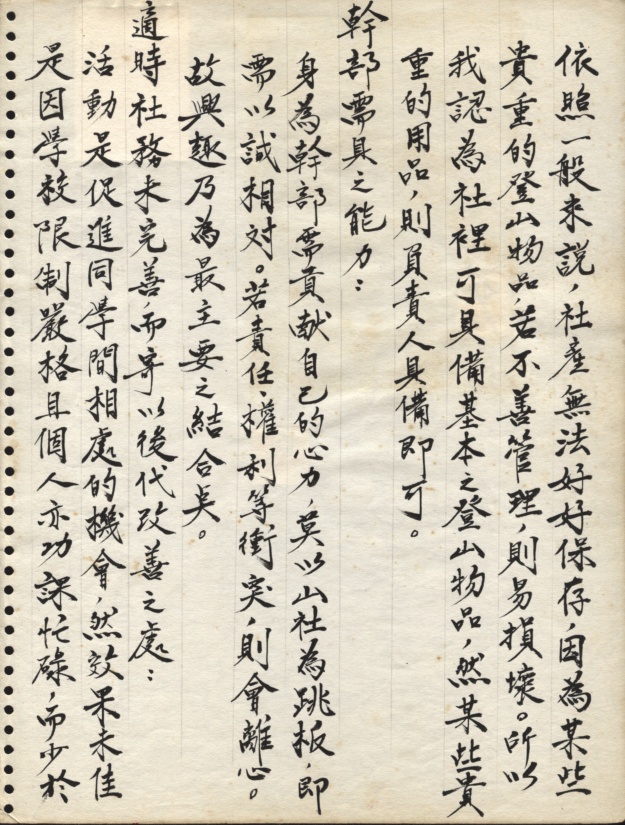 依照一般來說，社產無法好好保存，因為某些
貴重的登山物品，若不善管理，則易損壞。所以
我認為社裡可具備基本之登山物品，然某些貴
重的用品，則負責人具備即可。
幹部需具之能力：
身為幹部需貢献自己的心力，莫以山社為跳板，即
需以誠相对。若責任、權利等衝突，則會離心。
故興趣乃為最主要之結合点。
適時社務未完善，而寄以後代改善之處：
活動是促進同學間相處的機會，然效果未佳
是因學校限制嚴格且個人亦功課忙碌，而少於